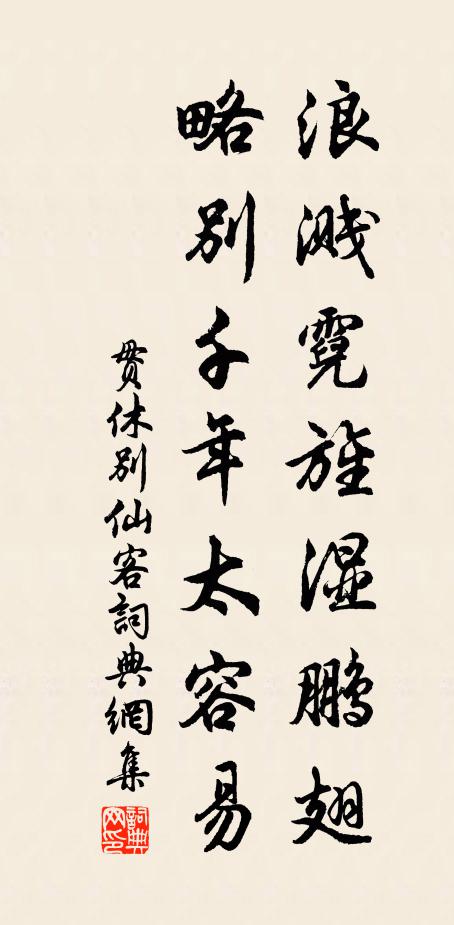 浪溅霓旌湿鹏翅
略别千年太容易
贯休别仙客詞典網集
詞典网印